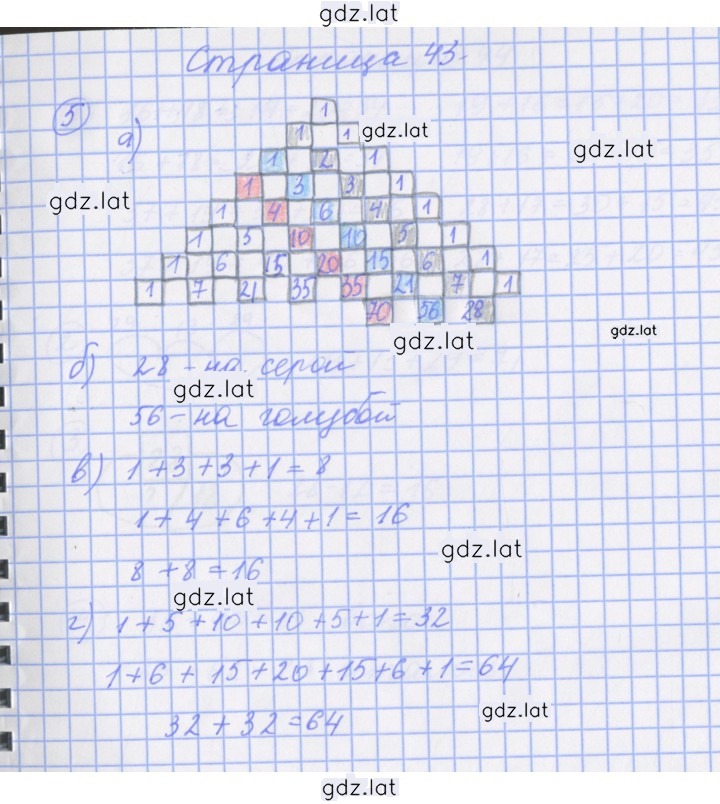 gdz.lat
Страница 43.
5 а)
1
1 1 gdz.lat
1 2 1 gdz.lat
1 3 3 1
gdz.lat 1 4 6 4 1
1 5 10 10 5 1
1 6 15 20 15 6 1
1 7 21 35 35 21 7 1
70 56 28
gdz.lat gdz.lat
б) 28 - на серой
gdz.lat
56 - на голубой
в) 1 + 3 + 3 + 1 = 8
1 + 4 + 6 + 4 + 1 = 16
gdz.lat
8 + 8 = 16
gdz.lat
г) 1 + 5 + 10 + 10 + 5 + 1 = 32
1 + 6 + 15 + 20 + 15 + 6 + 1 = 64
gdz.lat
32 + 32 = 64
gdz.lat